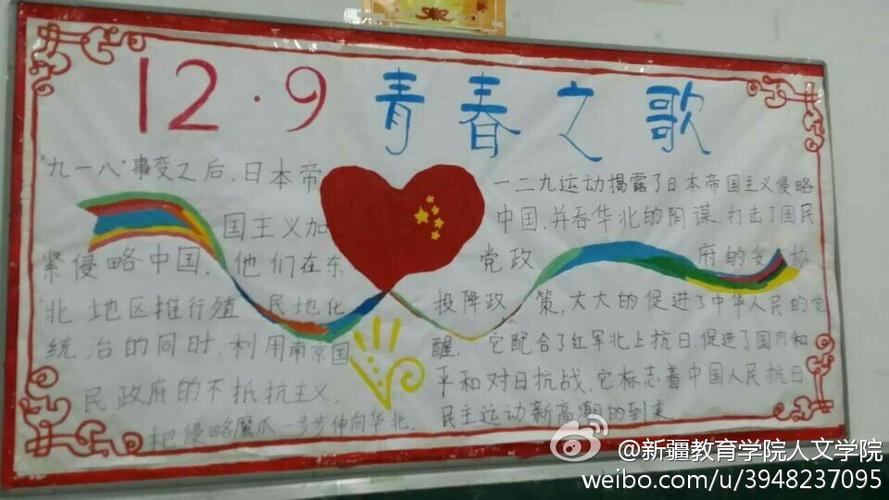 12·9 青春之歌
"九一八"事变之后，日本帝
国主义加
紧侵略中国，他们在东
北地区推行殖民地化
统治的同时，利用南京国
民政府的不抵抗主义，
把侵略魔爪一步步伸向华北。
一二九运动揭露了日本帝国主义侵略
中国，并吞华北的阴谋，打击了国民
党政府的妥协
投降政策，大大的促进了中华人民的觉
醒。它配合了红军北上抗日，促进了国内和
平和对日抗战，它标志着中国人民抗日
民主运动新高潮的到来
@新疆教育学院人文学院
weibo.com/u/3948237095